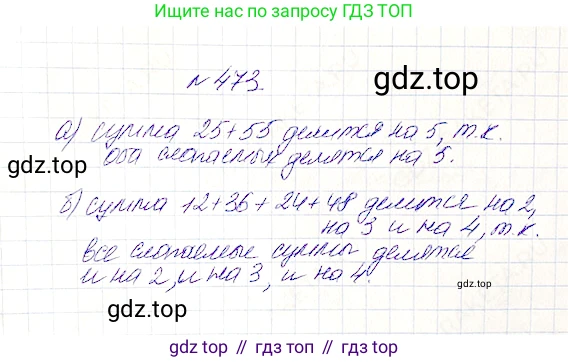 Ищите нас по запросу ГДЗ ТОП
№ 473.
gdz.top
а) сумма 25+55 делится на 5, т.к.
оба слагаемых делятся на 5.
gdz.top
б) сумма 12+36+24+48 делится на 2,
на 3 и на 4, т.к.
все слагаемые суммы делятся
и на 2, и на 3, и на 4.
gdz.top
gdz.top
gdz.top // гдз топ // gdz top // гдз.топ